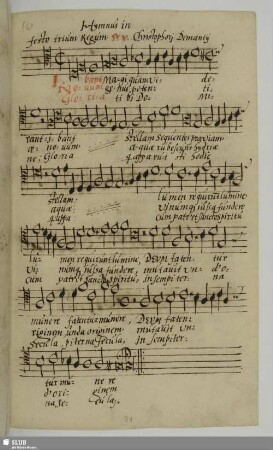 Hymnus in
festo trium Regum Christophorj Demantij
Ibant Magi quam vi de
Novum genus poten
Gloria ti bi Do mi
rant ibant stellam sequentes prae viam
ae novum aquae rubescunt hydriae
ne Gloria qui apparuisti hodie
stellam: lumen requirunt lumine
aquae vinumque iussa fundere
cum patre et sancto spiritu
lu men requirunt lumine, Deum faten tur
Vi numque iussa fundere, mutavit un do
cum patre et sancto spiritu, in sempiter na
munere fatentur munere, Deum faten
originem unda originem mutavit un
saecula, piterna saecula, in sempiter
tur mu ne re
d'ori ginem
na sae cula.
SLUB